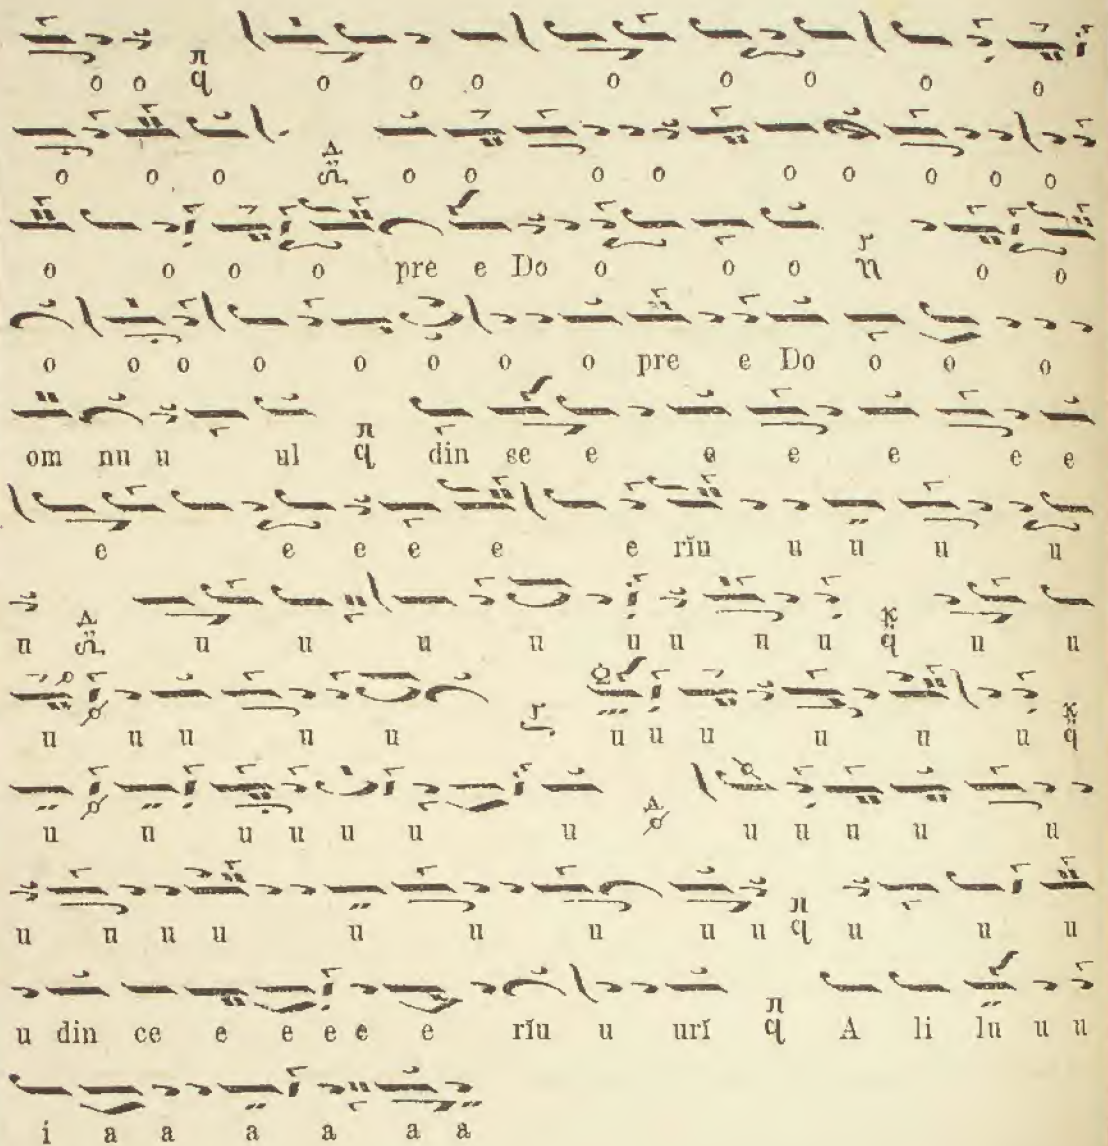 o o π q o o o o o o o o
o o o Δ o o o o o o o o o
o o o o pre e Do o o o r n o o
o o o o o o o o pre e Do o o o
om nu u ul π q din se e e e e e e
e e e e e e rĭu u u u u
u Δ u u u u u u u u κ q u u
u u u u u r u u u u u u κ q
u u u u u u u Δ u u u u u
u u u u u u u u u π q u u u
u din ce e e e e e rĭu u urĭ π q A li lu u u
i a a a a a a